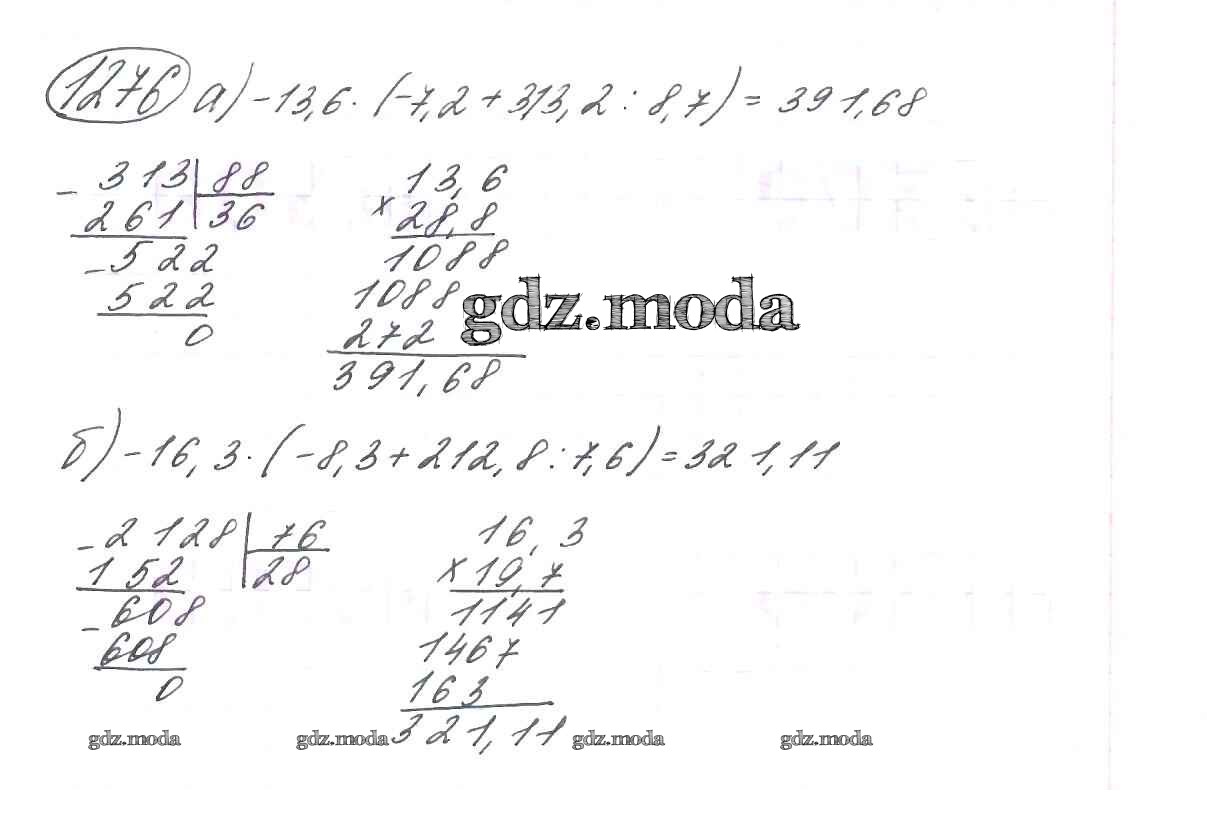 1276 а) -13,6 · (-7,2 + 313,2 : 8,7) = 391,68
- 313 | 88
261 | 36
- 522
522
0
13,6
× 28,8
1088
1088
272
391,68
gdz.moda
б) -16,3 · (-8,3 + 212,8 : 7,6) = 321,11
- 2128 | 76
152 | 28
- 608
608
0
16,3
× 19,7
1141
1467
163
321,11
gdz.moda gdz.moda gdz.moda gdz.moda